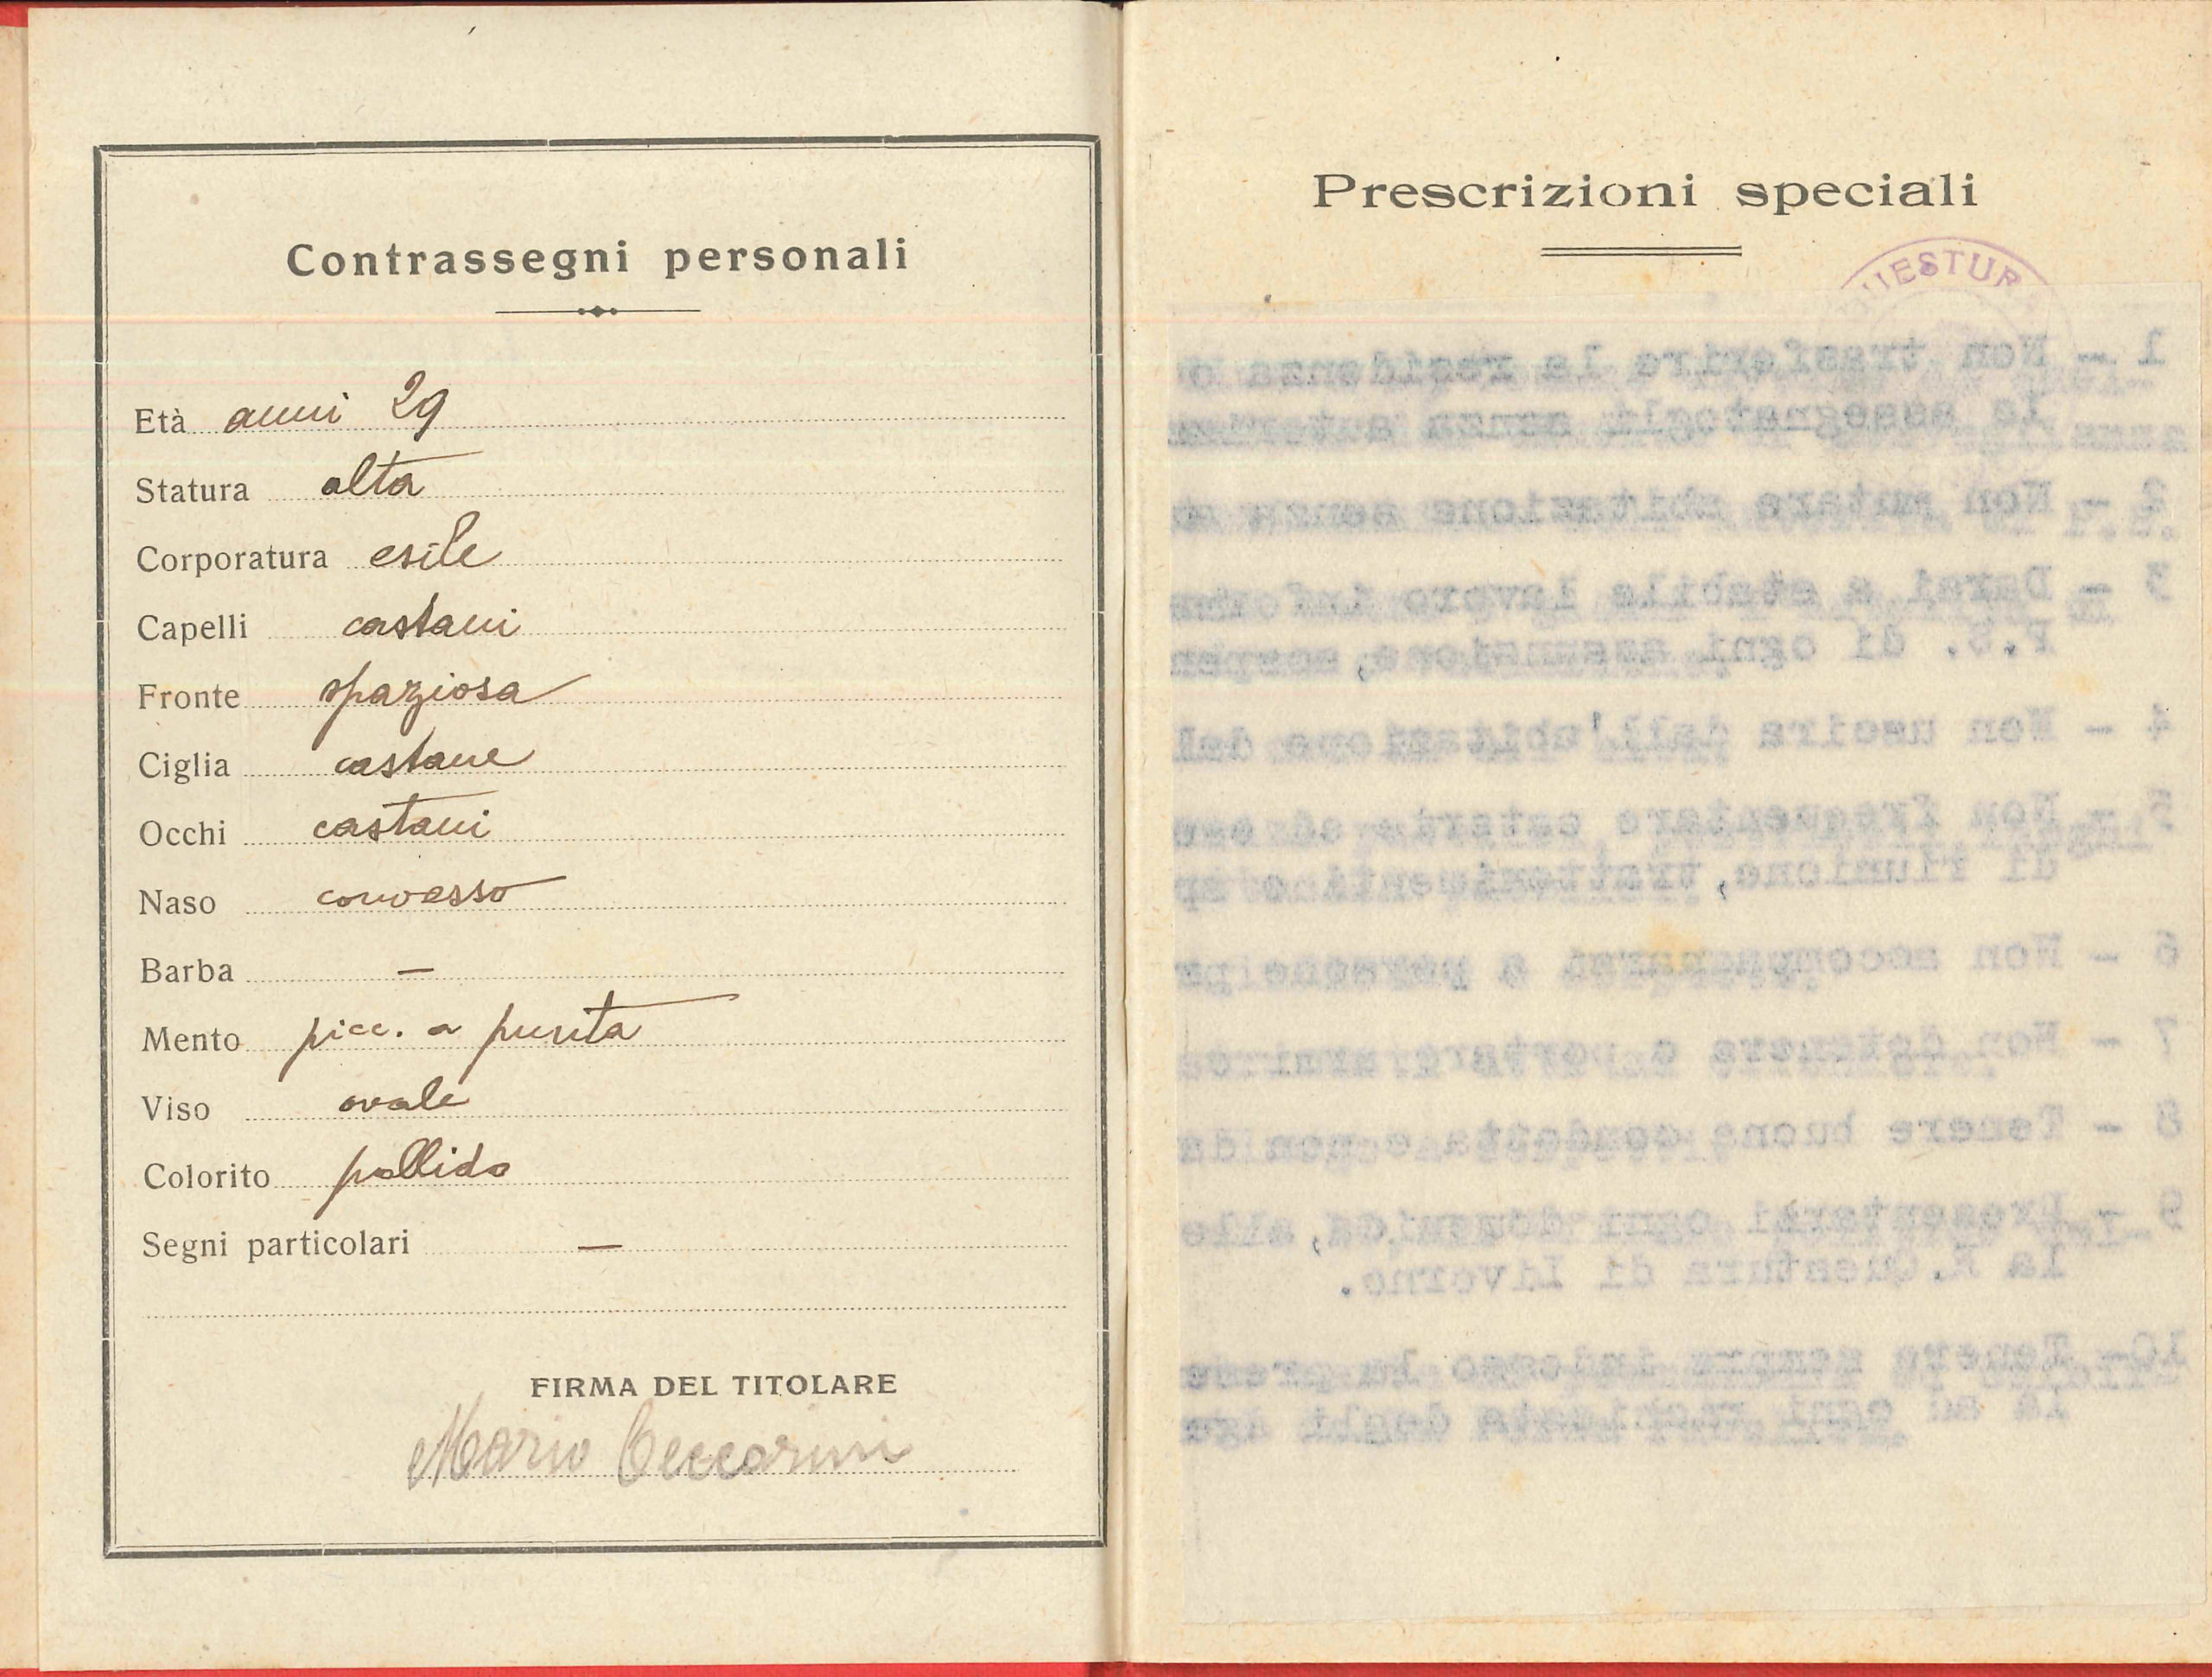 Contrassegni personali
Età anni 29
Statura alta
Corporatura esile
Capelli castani
Fronte spaziosa
Ciglia castane
Occhi castani
Naso convesso
Barba —
Mento picc. a punta
Viso ovale
Colorito pallido
Segni particolari —
FIRMA DEL TITOLARE
Mario Ceccarini
Prescrizioni speciali
QUESTUR
1 - Non trasferire la residenza
la assegnatogli senza
2 - Non mutare abitazione senza
3 - Darsi a stabile lavoro
P.S. di ogni assunzione,
4 - Non uscire dall'abitazione
5 - Non frequentare osterie ed
di riunione, trattenimenti o sp
6 - Non accompagnarsi a persone
7 - Non detenere o portare armi
8 - Tenere buona condotta e non da
9 - Presentarsi ogni domenica, alle
la R. Questura di Livorno.
10- Tenere sempre indosso la
la ad ogni richiesta degli